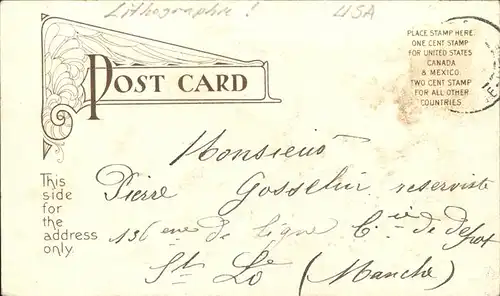 Lithographie ! USA
PLACE STAMP HERE.
ONE CENT STAMP
FOR UNITED STATES
CANADA
& MEXICO
TWO CENT STAMP
FOR ALL OTHER
COUNTRIES
POST CARD
This
side
for
the
address
only.
Monsieur
Pierre Gosselin reserviste
136 eme de ligne Cie de depot
St Lô (Manche)